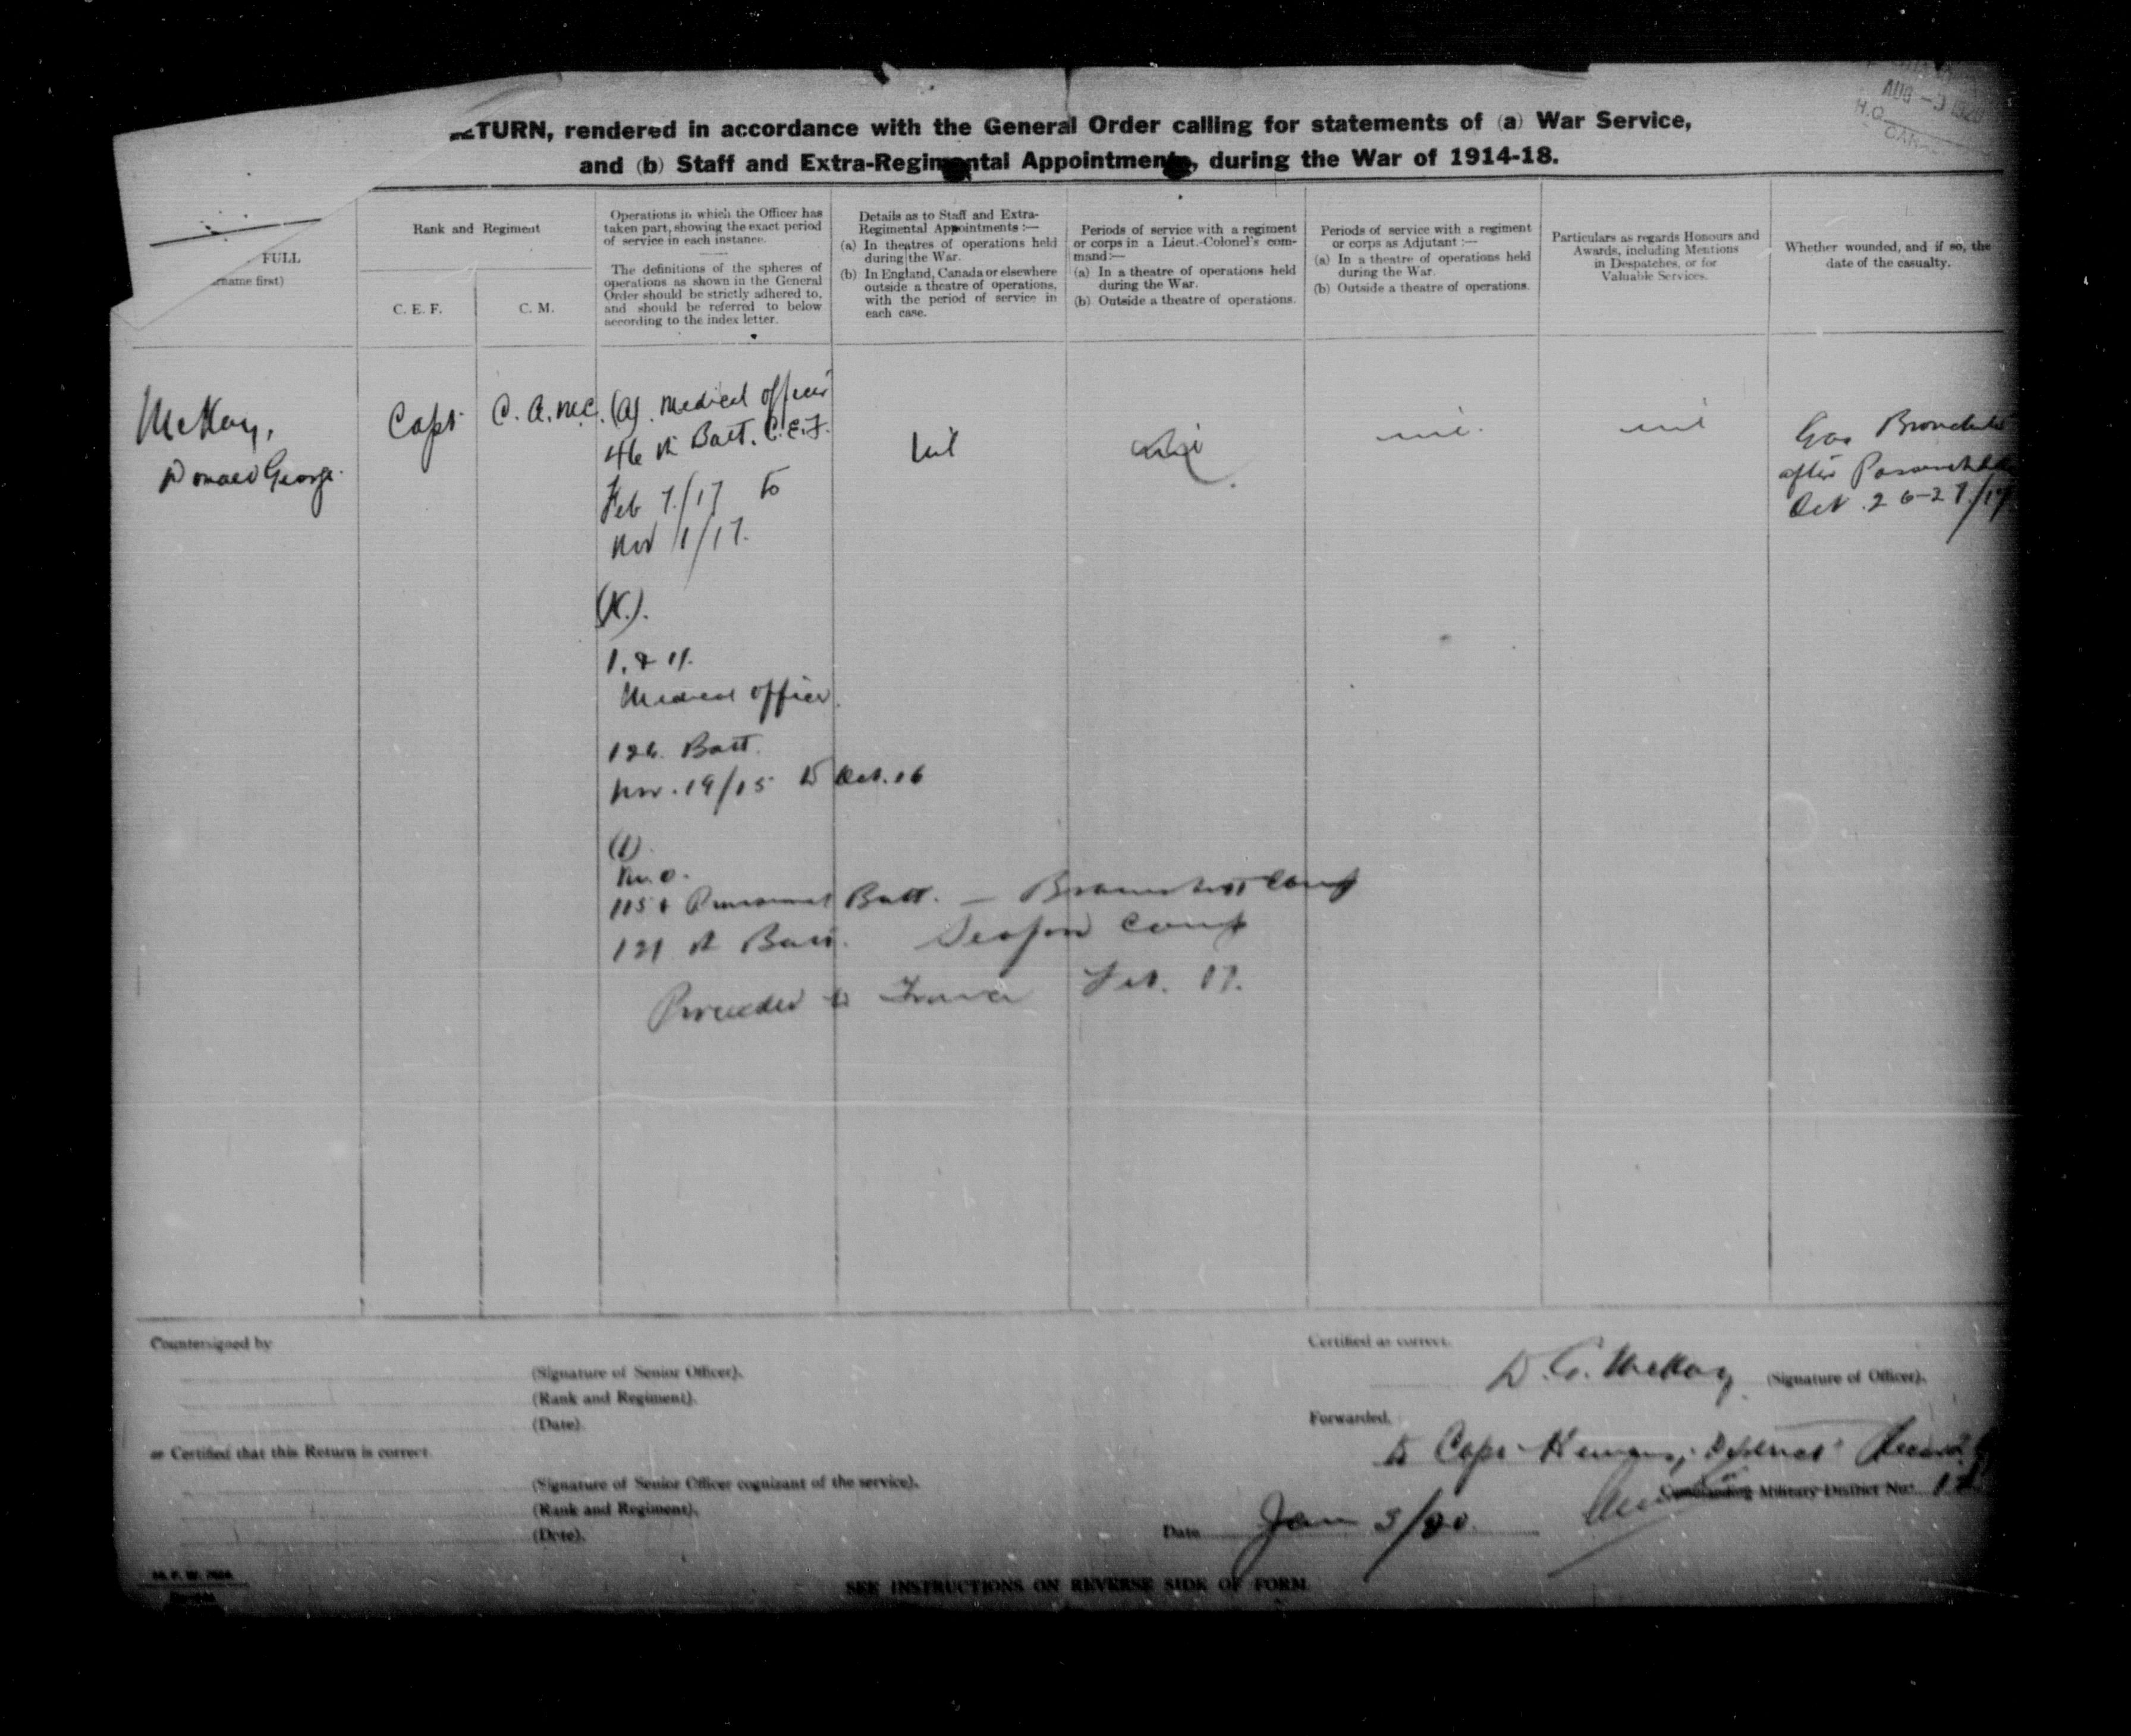 TURN, rendered in accordance with the General Order calling for statements of (a) War Service,
and (b) Staff and Extra-Regimental Appointments, during the War of 1914-18.
AUG - 1920
H.Q.
FULL
name first)
Rank and Regiment
C. E. F.
C. M.
Operations in which the Officer has
taken part, showing the exact period
of service in each instance.
The definitions of the spheres of
operations as shown in the General
Order should be strictly adhered to,
and should be referred to below
according to the index letter.
Details as to Staff and Extra-
Regimental Appointments :—
(a) In theatres of operations held
during the War.
(b) In England, Canada or elsewhere
outside a theatre of operations,
with the period of service in
each case.
Periods of service with a regiment
or corps in a Lieut.-Colonel's com-
mand :—
(a) In a theatre of operations held
during the War.
(b) Outside a theatre of operations.
Periods of service with a regiment
or corps as Adjutant :—
(a) In a theatre of operations held
during the War.
(b) Outside a theatre of operations.
Particulars as regards Honours and
Awards, including Mentions
in Despatches, or for
Valuable Services.
Whether wounded, and if so, the
date of the casualty.
McKay,
Donald George.
Capt
C. A. M.C.
(a). Medical officer
46 th Batt. C.E.F.
Feb 7/17 to
Nov 1/17.
(K.).
1. & 11.
Medical officer
126. Batt.
Nov. 19/15 to Oct. 16
M. O.
Batt. — Bramshott Camp
121 st Batt. Seaford Camp
Proceeded to France Feb. 17.
nil
nil
nil.
nil
Gas Bronchitis
after
Oct. 26-27/17
Countersigned by
(Signature of Senior Officer).
(Rank and Regiment).
(Date).
or Certified that this Return is correct.
(Signature of Senior Officer cognizant of the service).
(Rank and Regiment).
(Date).
Certified as correct.
D. G. McKay
(Signature of Officer).
Forwarded.
to Capt District Record
Commanding Military District No. 12
Date Jan 3/20.
SEE INSTRUCTIONS ON REVERSE SIDE OF FORM